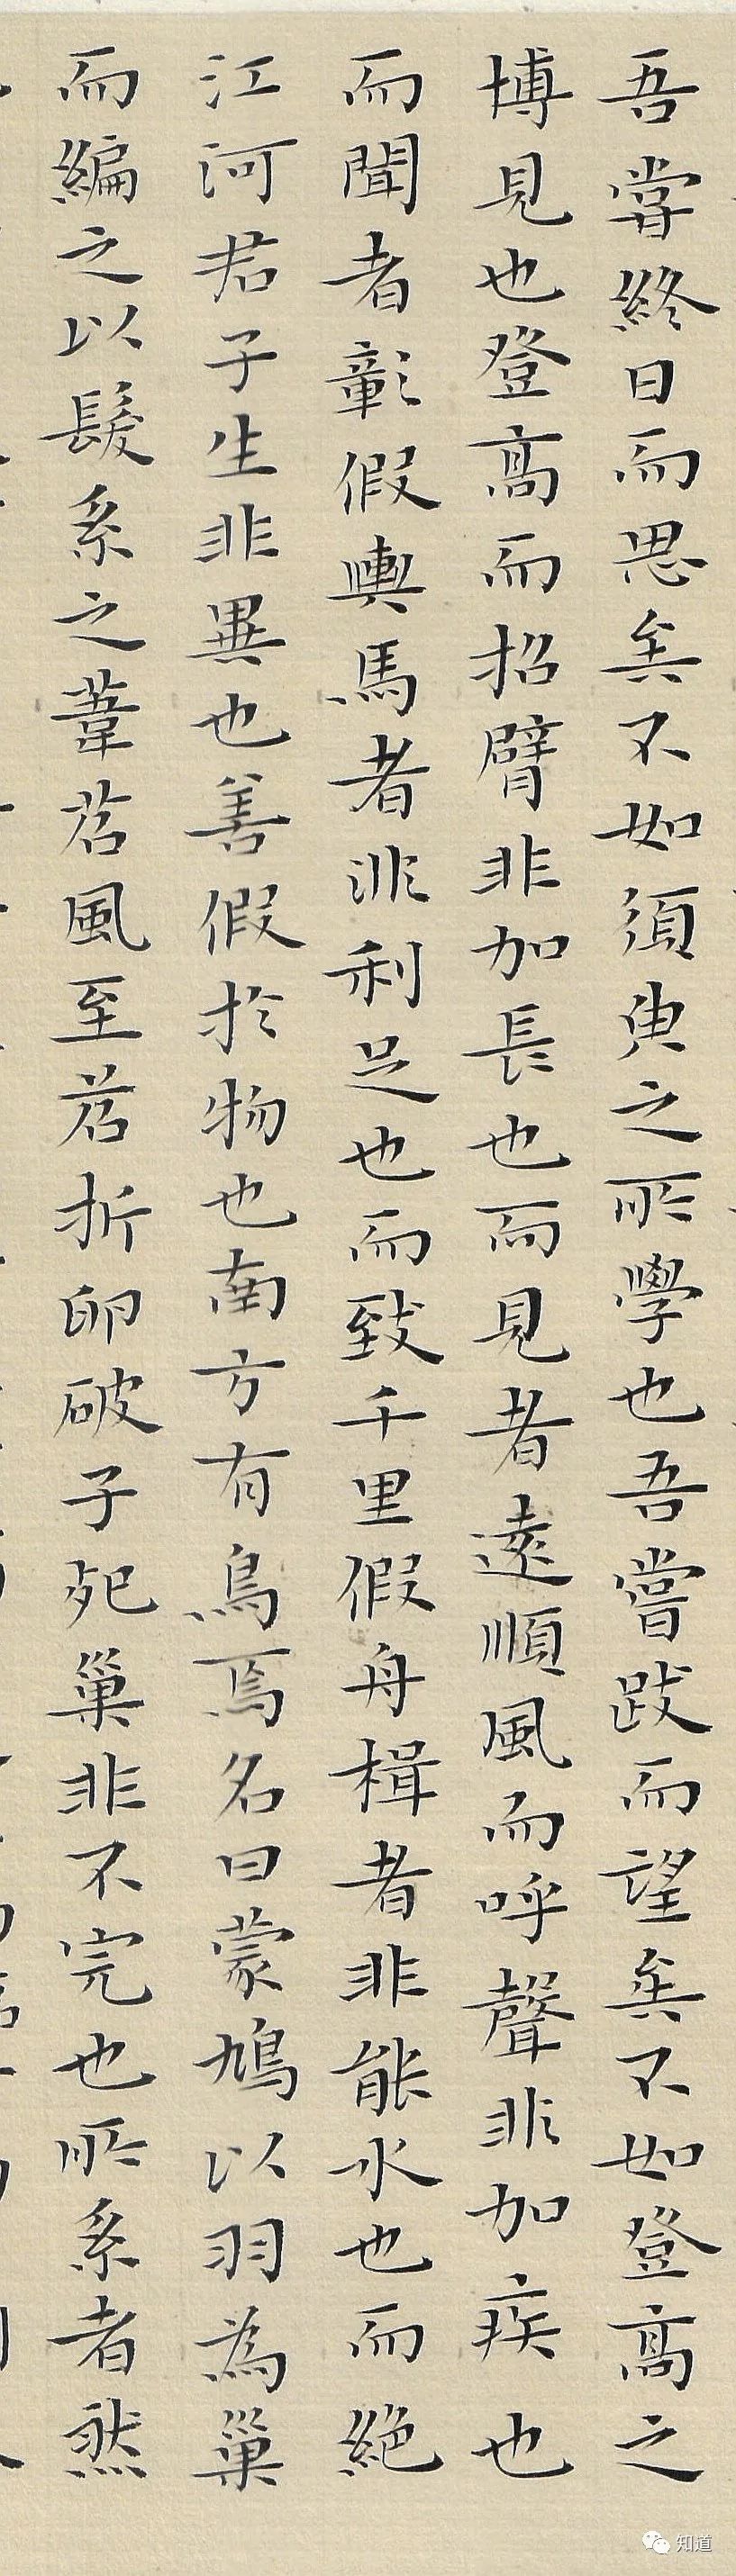 吾嘗終日而思矣不如須臾之所學也吾嘗跂而望矣不如登高之
博見也登高而招臂非加長也而見者遠順風而呼聲非加疾也
而聞者彰假輿馬者非利足也而致千里假舟楫者非能水也而絕
江河君子生非異也善假於物也南方有鳥焉名曰蒙鳩以羽為巢
而編之以髮系之葦苕風至苕折卵破子死巢非不完也所系者然
知道